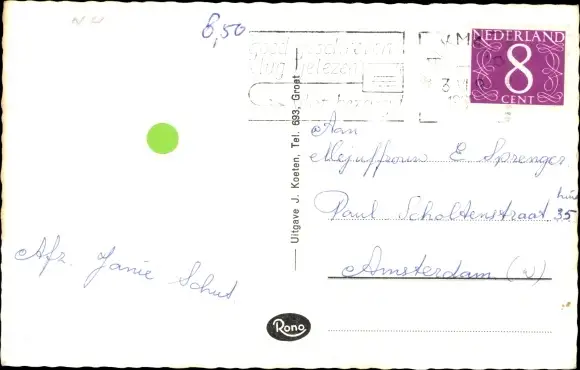 8,50
goed geschreven
vlug gelezen
NEDERLAND
8
CENT
Aan
Mejuffrouw E Sprenger.
Paul Scholtenstraat 35
Amsterdam (W)
Afz. Janie Schut
Uitgave J. Koeten, Tel. 693, Groet
Rono